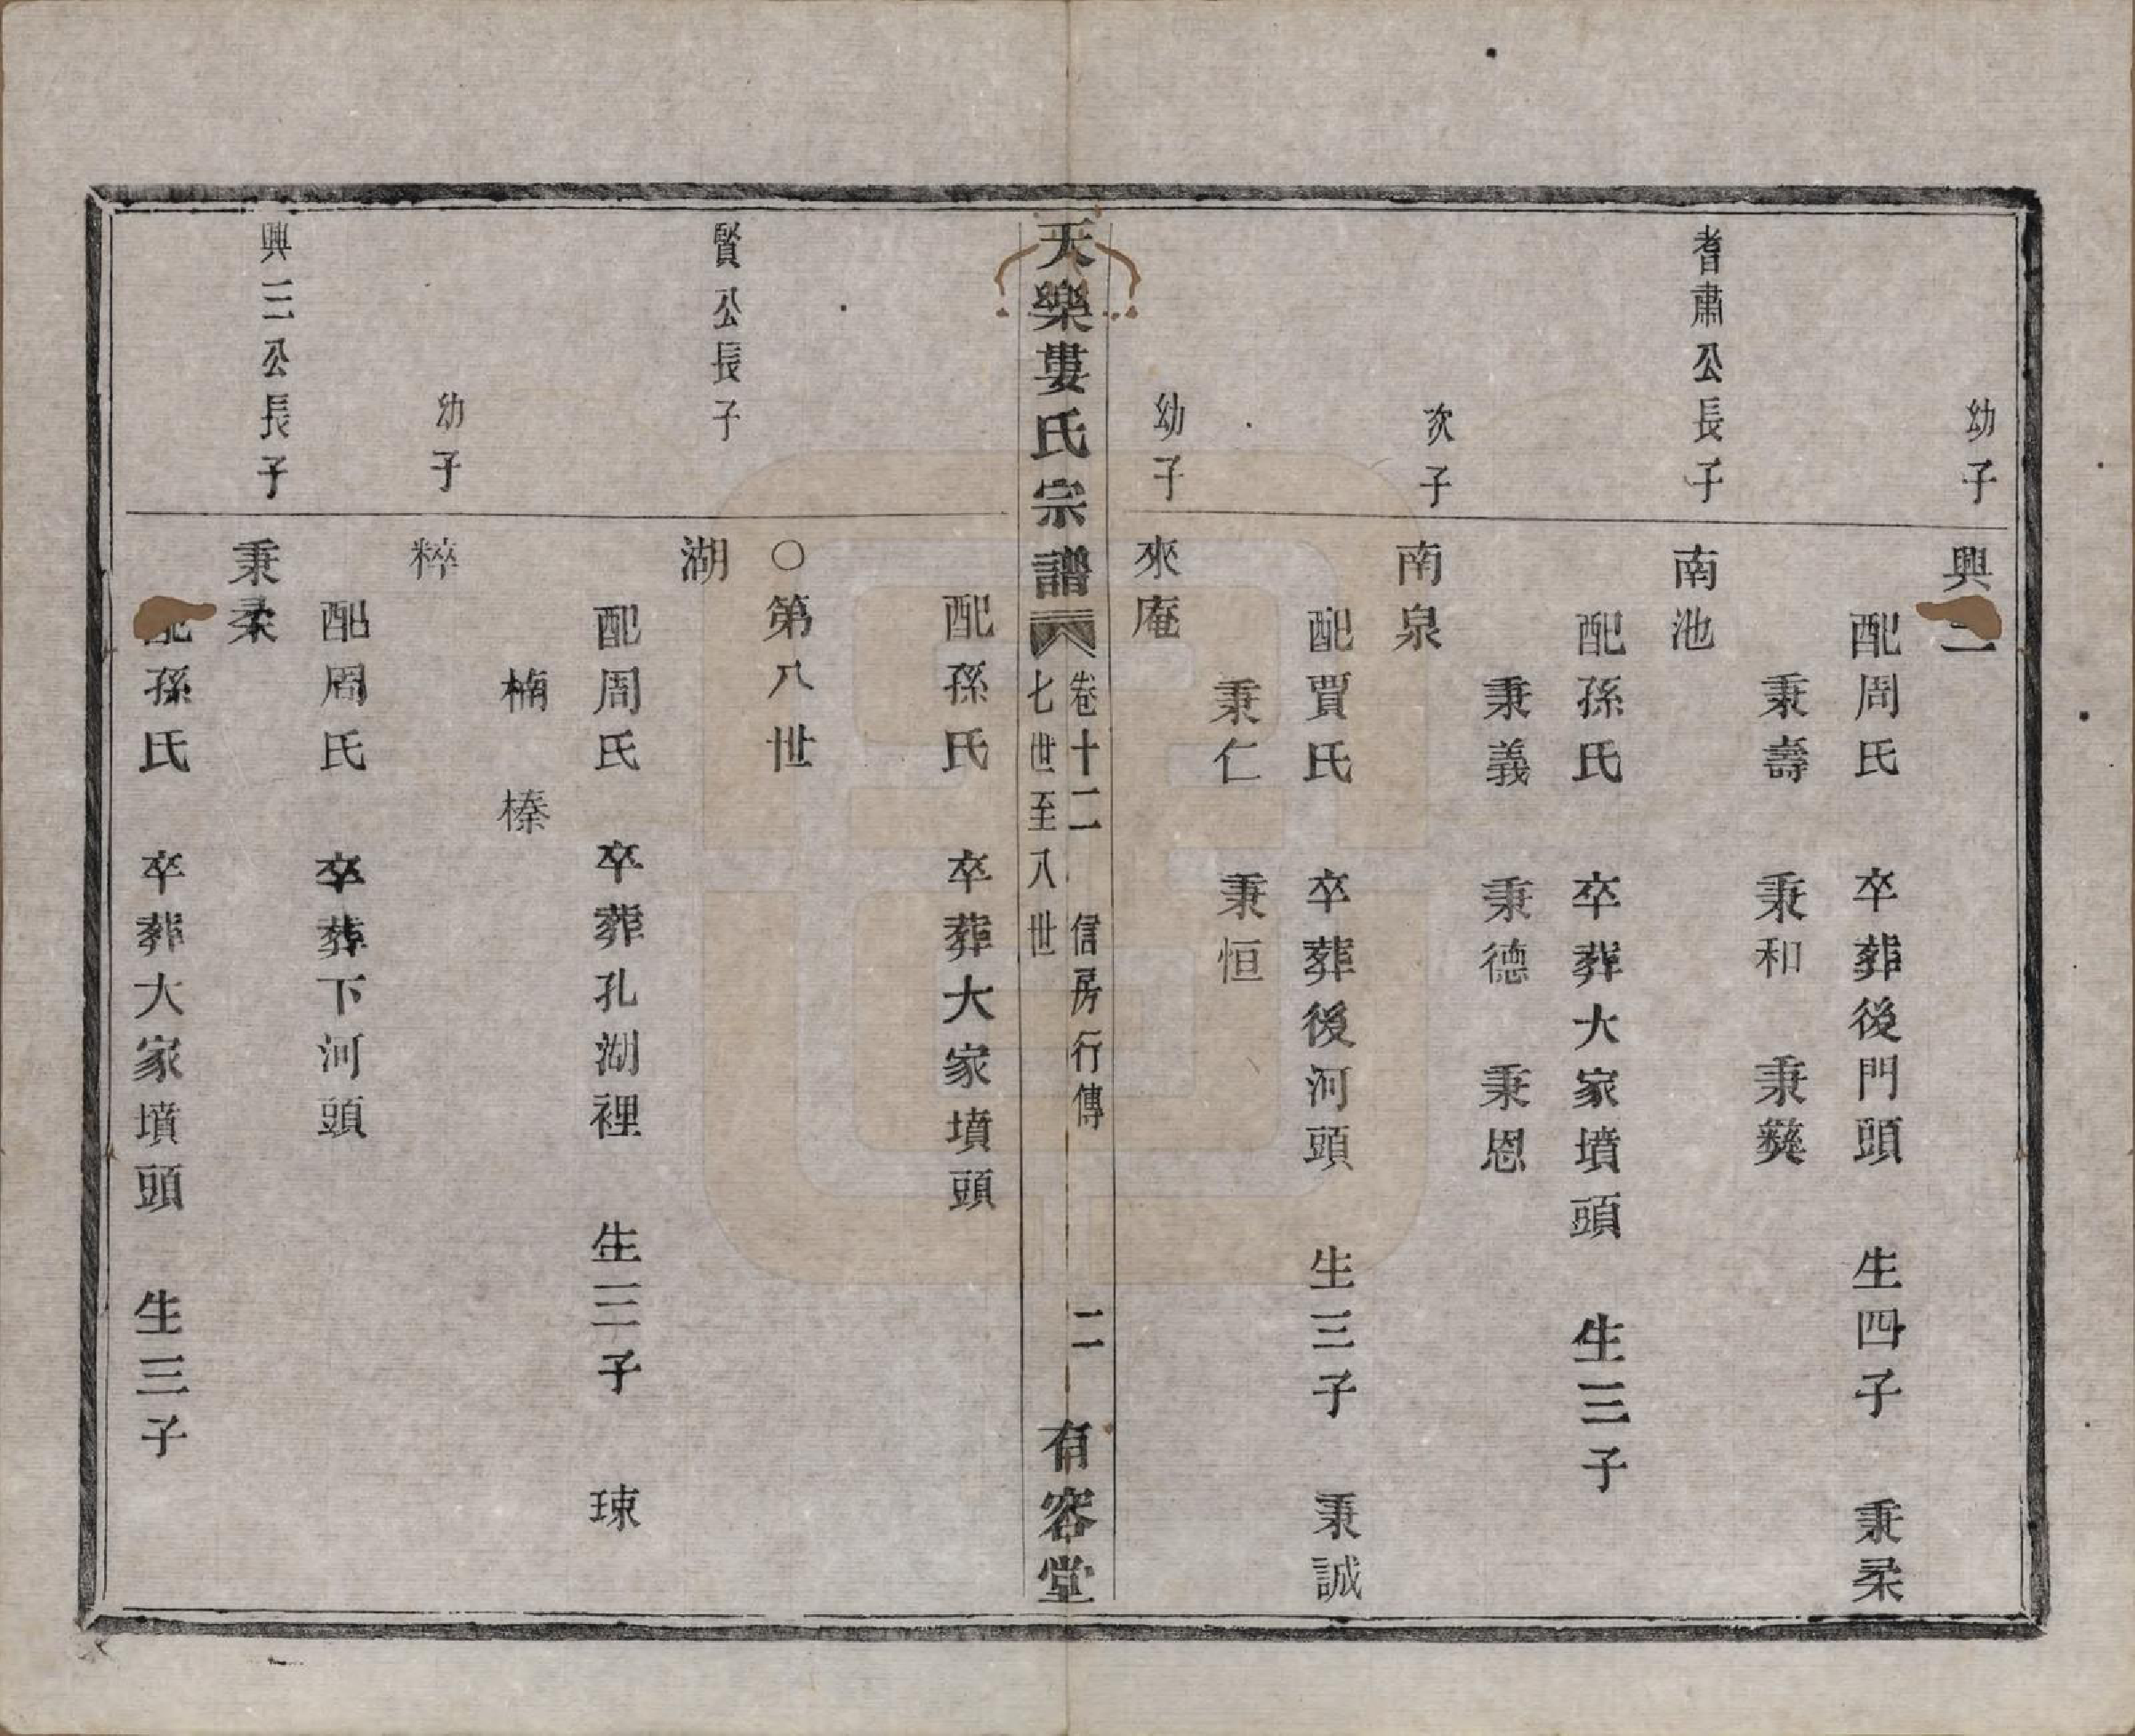 幼子
興二
配周氏 卒葬後門頭 生四子 秉柔
秉壽 秉和 秉彝
耆肅公長子
南池
配孫氏 卒葬大家墳頭 生三子
秉義 秉德 秉恩
次子
南泉
配賈氏 卒葬後河頭 生三子 秉誠
秉仁 秉恒
幼子
來庵
天樂婁氏宗譜 卷十二 信房行傳 二 有容堂
七世至八世
配孫氏 卒葬大家墳頭
○第八世
賢公長子
湖
配周氏 卒葬孔湖裡 生三子 㻋
楠 榛
幼子
粹
配周氏 卒葬下河頭
興二公長子
秉柔
配孫氏 卒葬大家墳頭 生三子